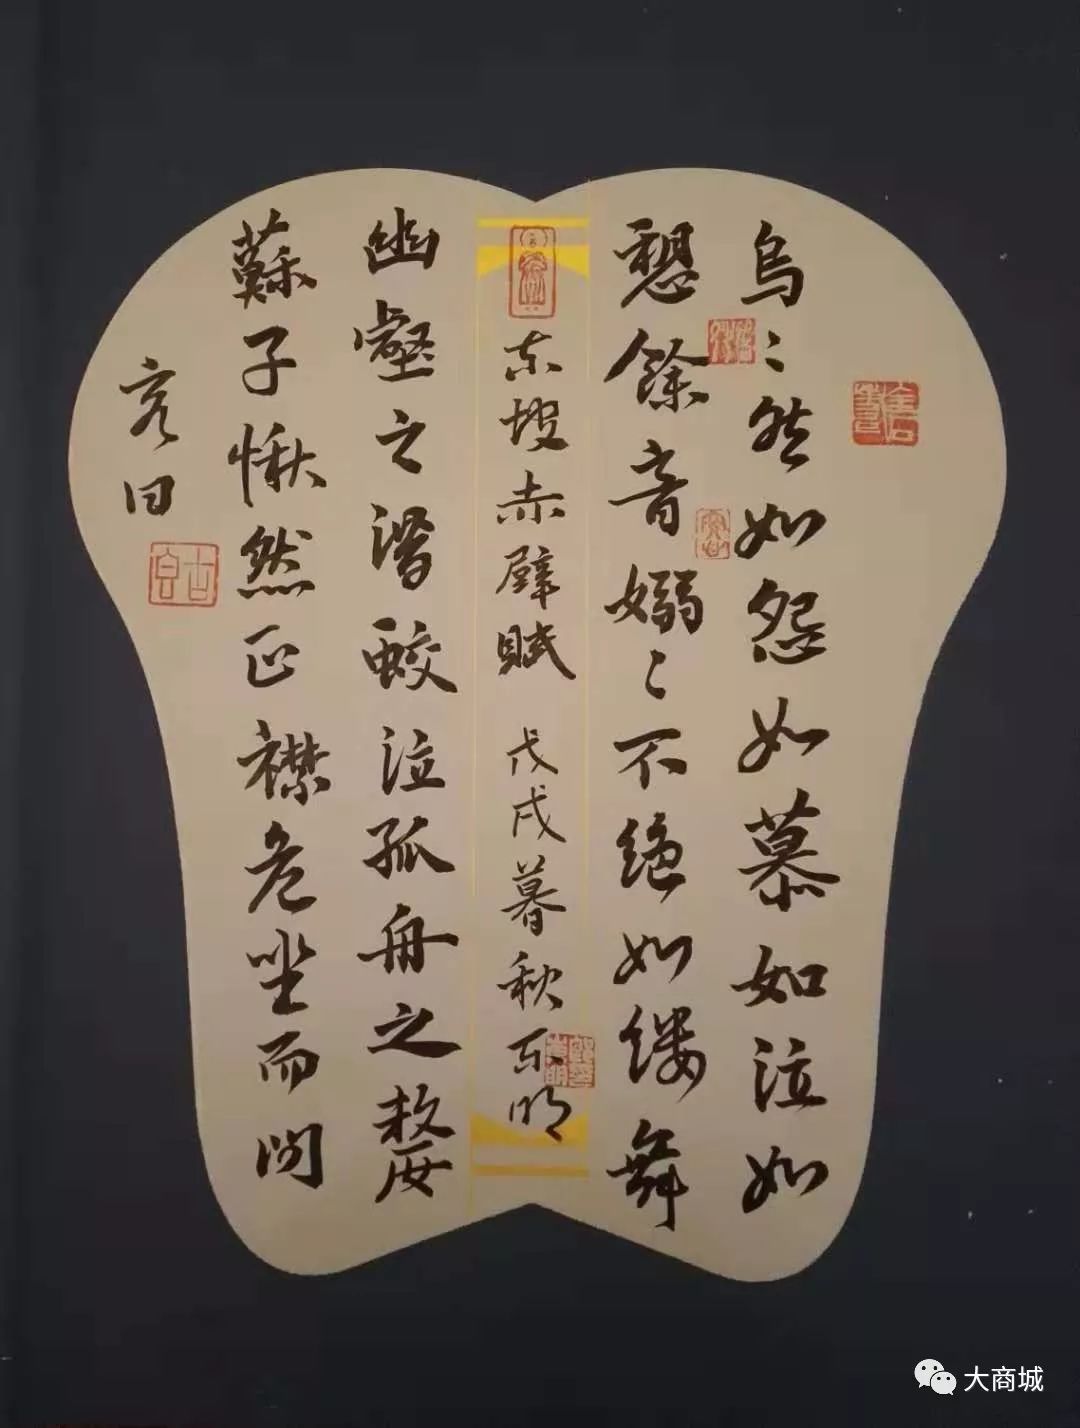 烏〻然如怨如慕如泣如
愬餘音嫋〻不绝如缕舞
幽壑之潛蛟泣孤舟之嫠
蘇子愀然正襟危坐而问
客曰
东坡赤壁賦 戊戌暮秋东明
大商城